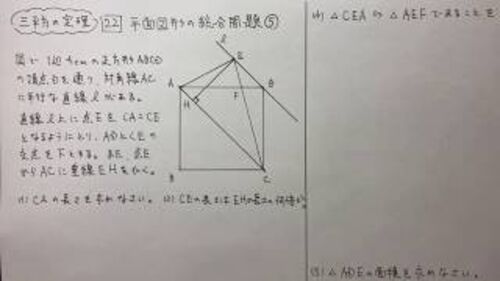 三平方の定理 22 平面図形の総合問題⑤
図で1辺4cmの正方形ABCD
の頂点Dを通り、対角線AC
に平行な直線lがある。
直線l上に点EをCA=CE
となるようにとり、ADとCEの
交点をFとする。また、点E
からACに垂線EHをひく。
(1) CAの長さを求めなさい。 (2) CEの長さはEHの長さの何倍か。
l
E
A
F
D
H
B
C
△CEA ∽ △AEFであることを
△ADEの面積を求めなさい。